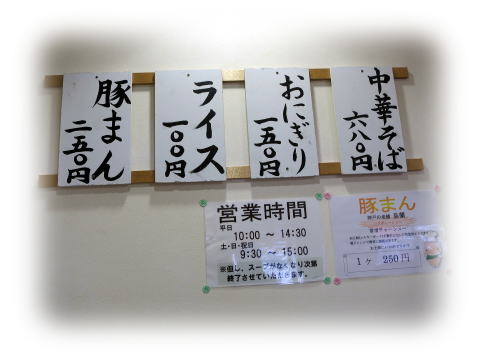 中華そば
六八〇円
おにぎり
一五〇円
ライス
一〇〇円
豚まん
二五〇円
営業時間
平日
10:00 ～ 14:30
土・日・祝日
9:30 ～ 15:00
※但し、スープがなくなり次第
終了させていただきます。
豚まん
1ヶ 250円